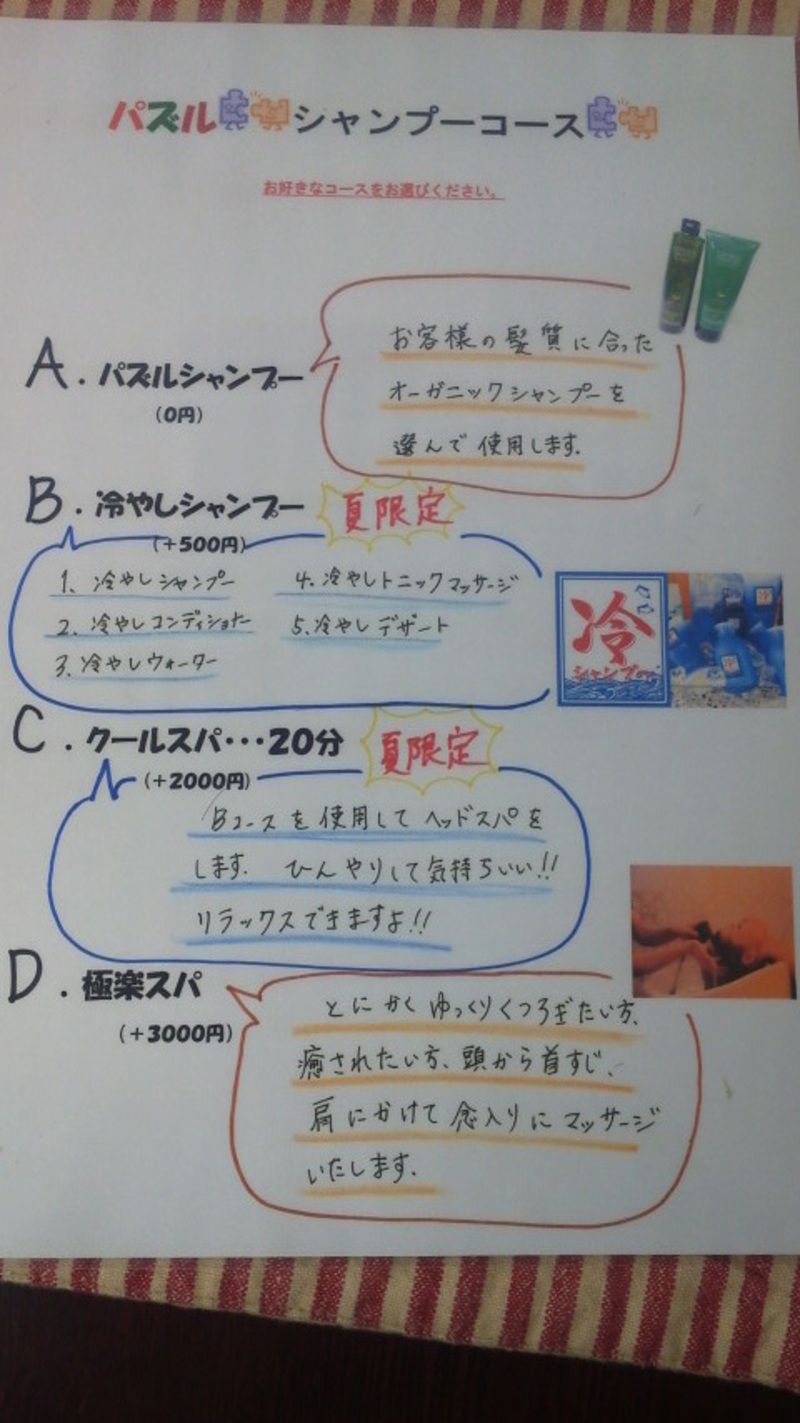 パズルシャンプーコース
お好きなコースをお選びください。
A.パズルシャンプー
(0円)
お客様の髪質に合った
オーガニックシャンプーを
選んで使用します.
B.冷やしシャンプー
夏限定
(+500円)
1.冷やしシャンプー
2.冷やしコンディショナー
3.冷やしウォーター
4.冷やしトニックマッサージ
5.冷やしデザート
冷
シャンプー
C.クールスパ・・・20分
夏限定
(+2000円)
Bコースを使用してヘッドスパを
します. ひんやりして気持ちいい!!
リラックスできますよ!!
D.極楽スパ
(+3000円)
とにかくゆっくりくつろぎたい方、
癒されたい方、頭から首すじ、
肩にかけて念入りにマッサージ
いたします.